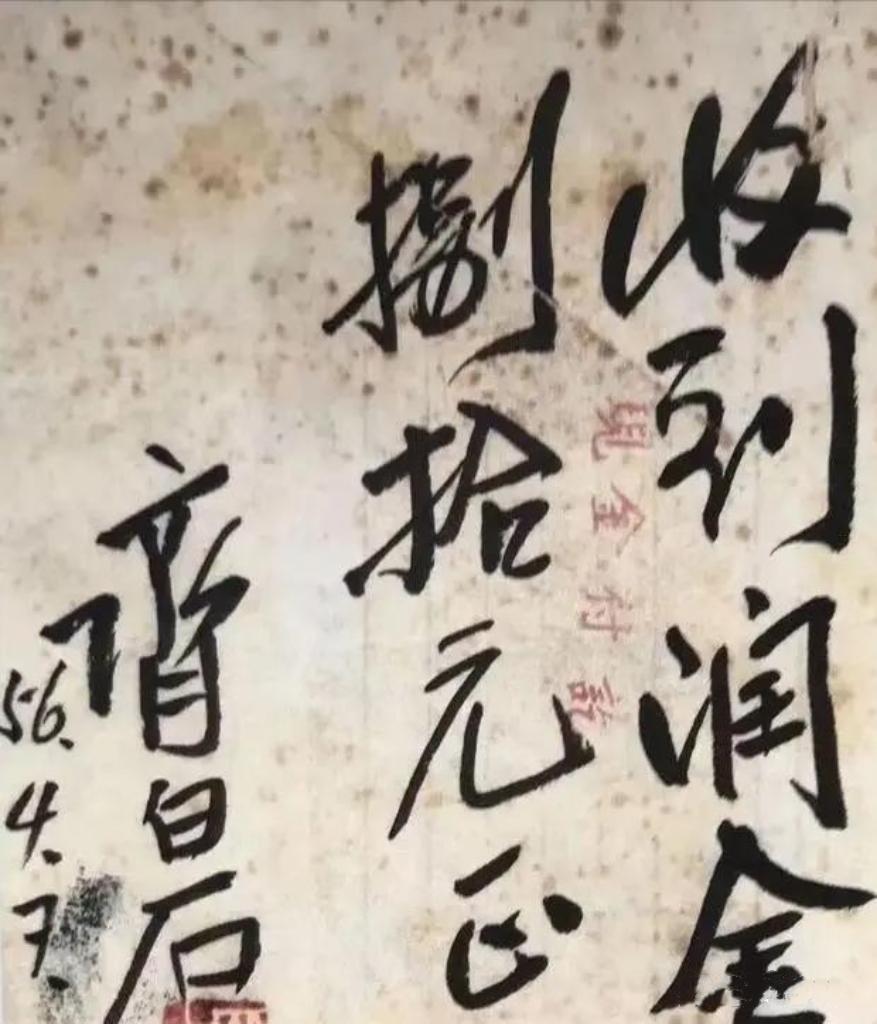 收到润金
捌拾元正
齊白石
56.4.7.
现金付訖